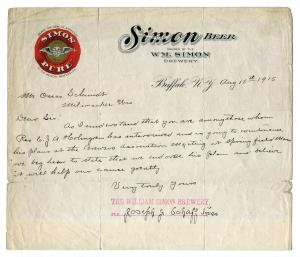 SIMON
PURE
Simon BEER
WM. SIMON
BREWERY.
Buffalo, N.Y. Aug 15th 1915
Mr Oscar Schmidt
Milwaukee Wis
Dear Sir:
As I understand that you are among those whom
Rev C. J. A. has interviewed and is going to
his plans at the Brewers association Meeting at Springfield Mass
we beg leave to state that we endorse his plan and believe
it will help our cause greatly
Very truly Yours
THE WILLIAM SIMON BREWERY,
PER Joseph J. Schaff